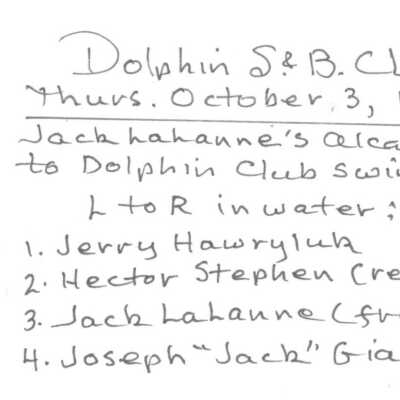 Dolphin S.&B. CL
Thurs. October 3,
Jack Lahanne's alca
to Dolphin Club swi
L to R in water:
1. Jerry Hawryluk
2. Hector Stephen (re
3. Jack Lahanne (fr
4. Joseph "Jack" Gia